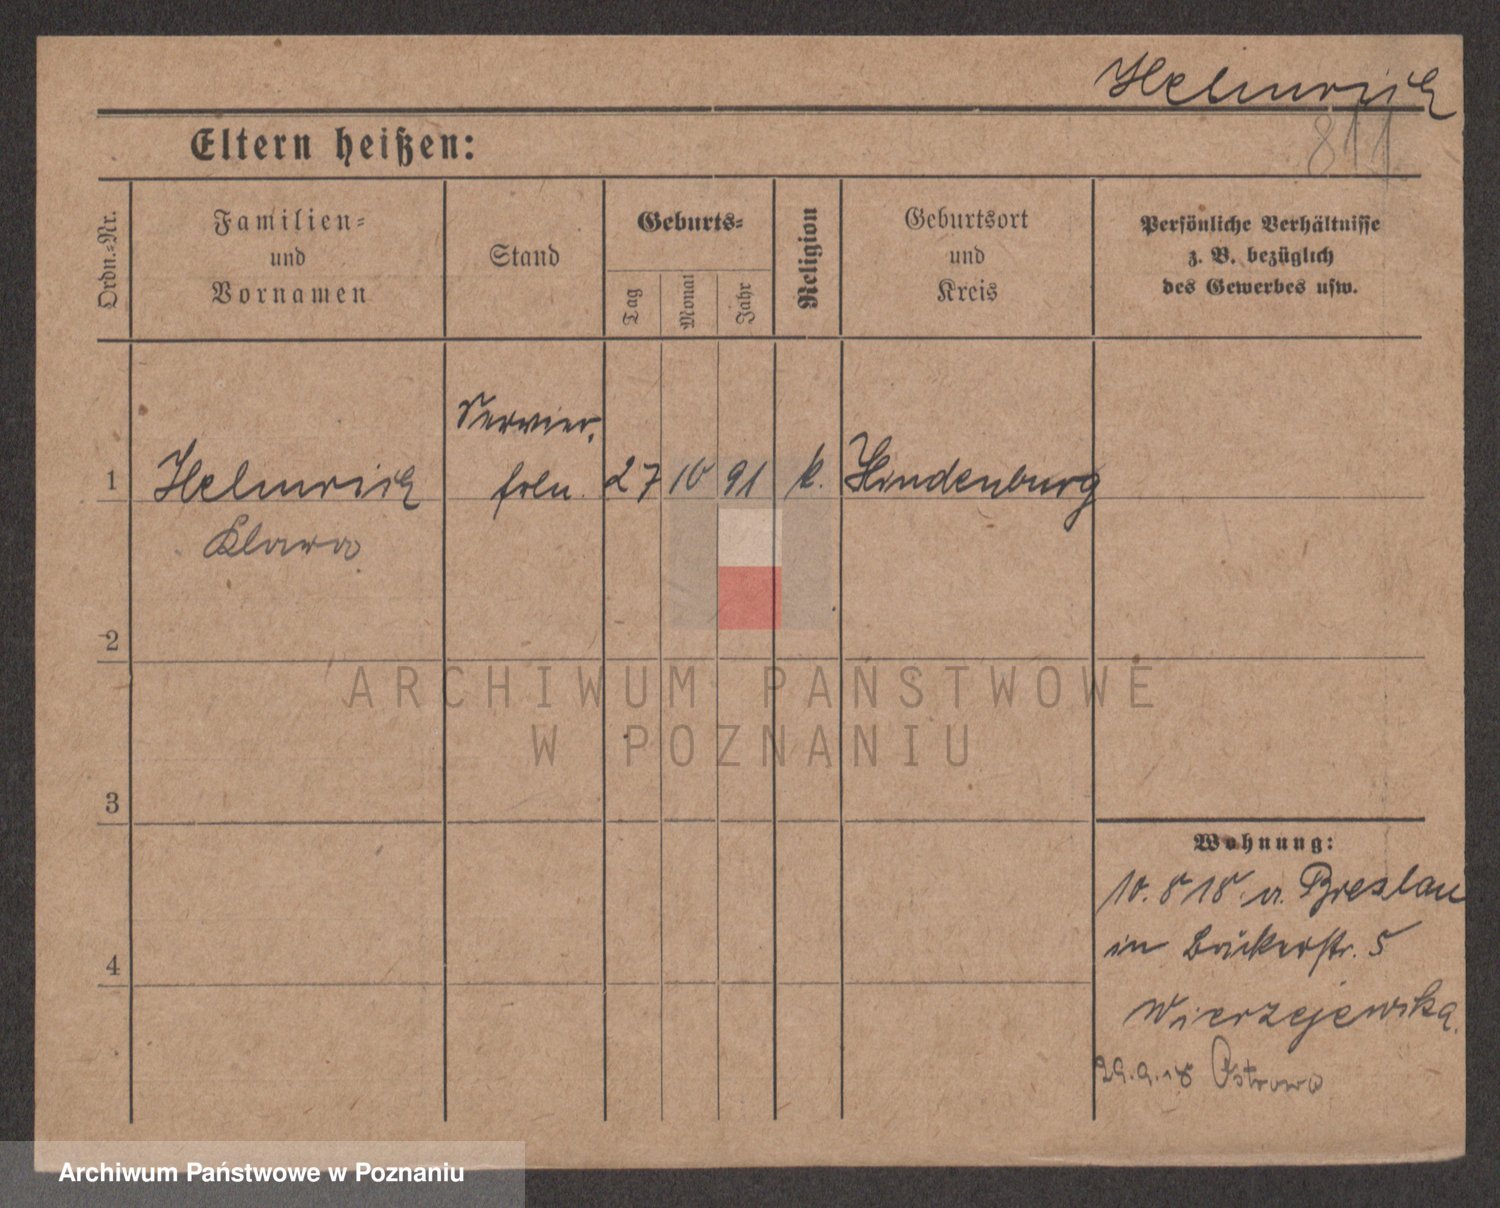 Helmrich
811
Eltern heißen:
Ordn.-Nr.
Familien-
und
Vornamen
Stand
Geburts-
Tag
Monat
Jahr
Religion
Geburtsort
und
Kreis
Persönliche Verhältnisse
z. B. bezüglich
des Gewerbes usw.
Servier.
1 Helmrich frln. 27 10 91 k. Hindenburg
Klara
2
ARCHIWUM PAŃSTWOWE
W POZNANIU
3
Wohnung:
10. 8 18 v. Breslau
in Bäckerstr. 5
4
Wierzejewska.
29.9.18 Ostrowo
Archiwum Państwowe w Poznaniu